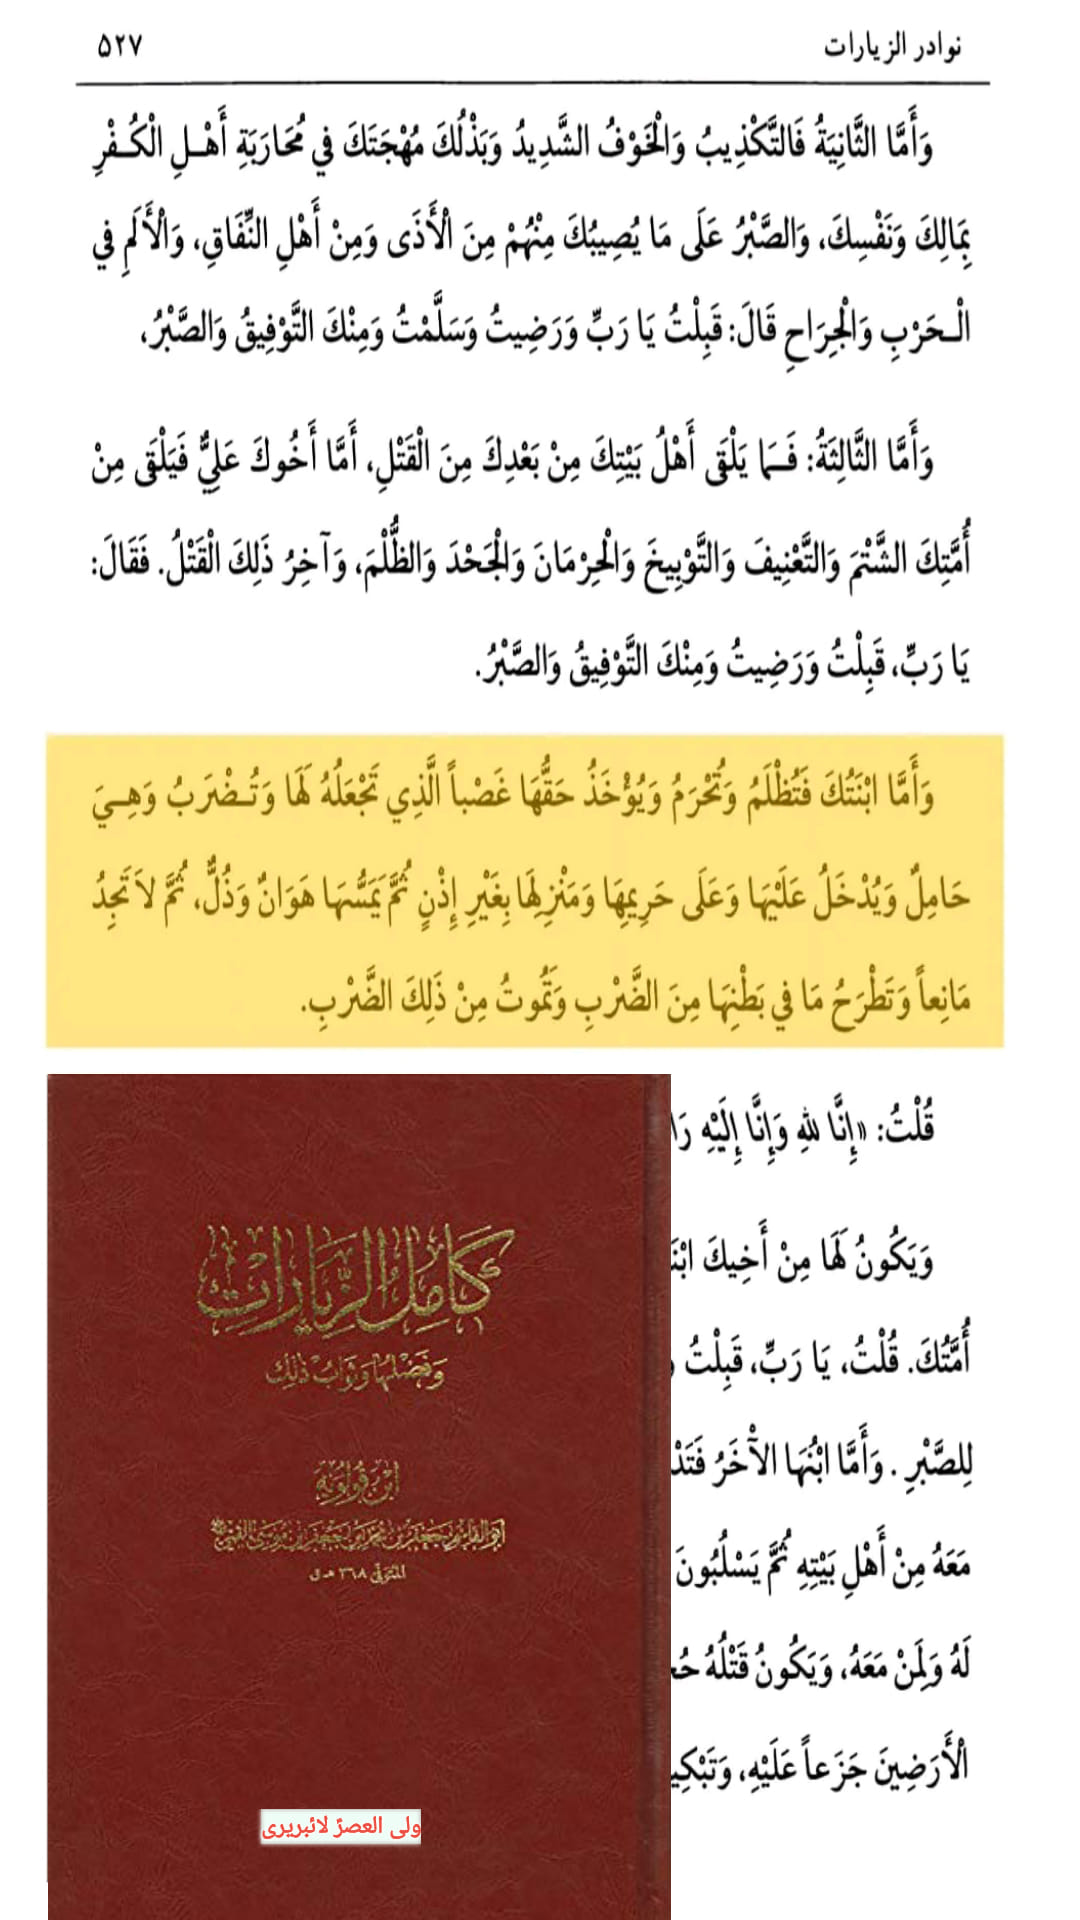 نوادر الزيارات ٥٢٧
وَأَمَّا الثَّانِيَةُ فَالتَّكْذِيبُ وَالْخَوْفُ الشَّدِيدُ وَبَذْلُكَ مُهْجَتَكَ فِي مُحَارَبَةِ أَهْـلِ الْكُـفْرِ
بِمَالِكَ وَنَفْسِكَ، وَالصَّبْرُ عَلَى مَا يُصِيبُكَ مِنْهُمْ مِنَ الْأَذَى وَمِنْ أَهْلِ النِّفَاقِ، وَالْأَلَمِ فِي
الْـحَرْبِ وَالْجِرَاحِ قَالَ: قَبِلْتُ يَا رَبِّ وَرَضِيتُ وَسَلَّمْتُ وَمِنْكَ التَّوْفِيقُ وَالصَّبْرُ،
وَأَمَّا الثَّالِثَةُ: فَـمَا يَلْقَى أَهْلُ بَيْتِكَ مِنْ بَعْدِكَ مِنَ الْقَتْلِ، أَمَّا أَخُوكَ عَلِيٌّ فَيَلْقَى مِنْ
أُمَّتِكَ الشَّتْمَ وَالتَّعْنِيفَ وَالتَّوْبِيخَ وَالْحِرْمَانَ وَالْجَحْدَ وَالظُّلْمَ، وَآخِرُ ذَلِكَ الْقَتْلُ. فَقَالَ:
يَا رَبِّ، قَبِلْتُ وَرَضِيتُ وَمِنْكَ التَّوْفِيقُ وَالصَّبْرُ.
وَأَمَّا ابْنَتُكَ فَتُظْلَمُ وَتُحْرَمُ وَيُؤْخَذُ حَقُّهَا غَصْباً الَّذِي تَجْعَلُهُ لَهَا وَتُـضْرَبُ وَهِـيَ
حَامِلٌ وَيُدْخَلُ عَلَيْهَا وَعَلَى حَرِيمِهَا وَمَنْزِلِهَا بِغَيْرِ إِذْنٍ ثُمَّ يَمَسُّهَا هَوَانٌ وَذُلٌّ، ثُمَّ لاَ تَجِدُ
مَانِعاً وَتَطْرَحُ مَا فِي بَطْنِهَا مِنَ الضَّرْبِ وَتَمُوتُ مِنْ ذَلِكَ الضَّرْبِ.
قُلْتُ: «إِنَّا للهِ وَإِنَّا إِلَيْهِ
وَيَكُونُ لَهَا مِنْ أَخِيكَ
أُمَّتُكَ. قُلْتُ، يَا رَبِّ، قَبِلْتُ
لِلصَّبْرِ . وَأَمَّا ابْنُهَا الْآخَرُ
مَعَهُ مِنْ أَهْلِ بَيْتِهِ ثُمَّ يَسْلُبُونَ
لَهُ وَلِمَنْ مَعَهُ، وَيَكُونُ قَتْلُهُ
الْأَرَضِينَ جَزَعاً عَلَيْهِ،
كَامِلُ الزِّيَارَاتِ
وَفَضْلُهَا وَثَوَابُ ذَلِكَ
ابْن قُولَوَيه
أبو القاسم جعفر بن محمد بن جعفر بن موسى القمي
المتوفى ٣٦٨ هـ ق
ولی العصرؑ لائبریری